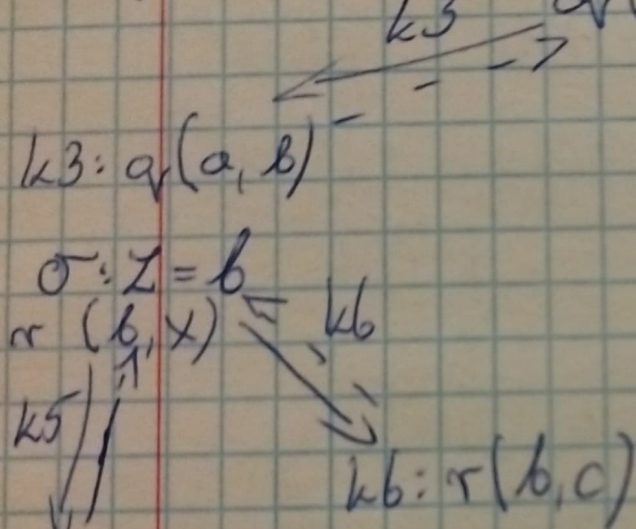 k3
k3: q(a, b)
σ: Z = b
r (b, X)
k6
k5
k6: r(b, c)